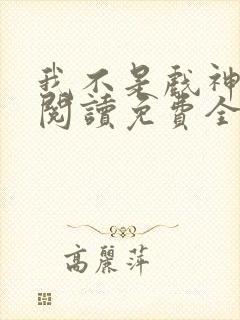 我不是戲神
閱讀免費全
高麗萍